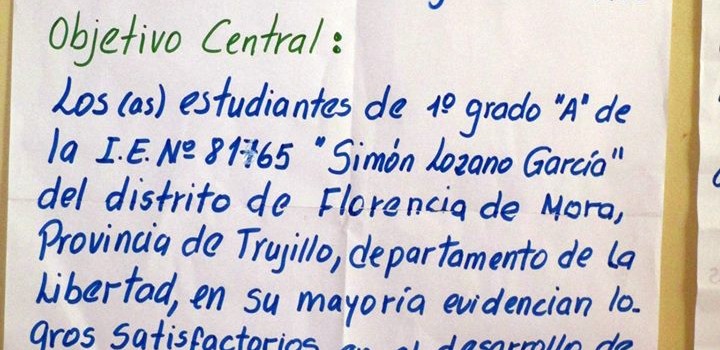 Objetivo Central:
Los (as) estudiantes de 1º grado "A" de
la I.E. Nº 81765 "Simón Lozano García"
del distrito de Florencia de Mora,
Provincia de Trujillo, departamento de La
Libertad, en su mayoría evidencian lo-
gros satisfactorios en el desarrollo de